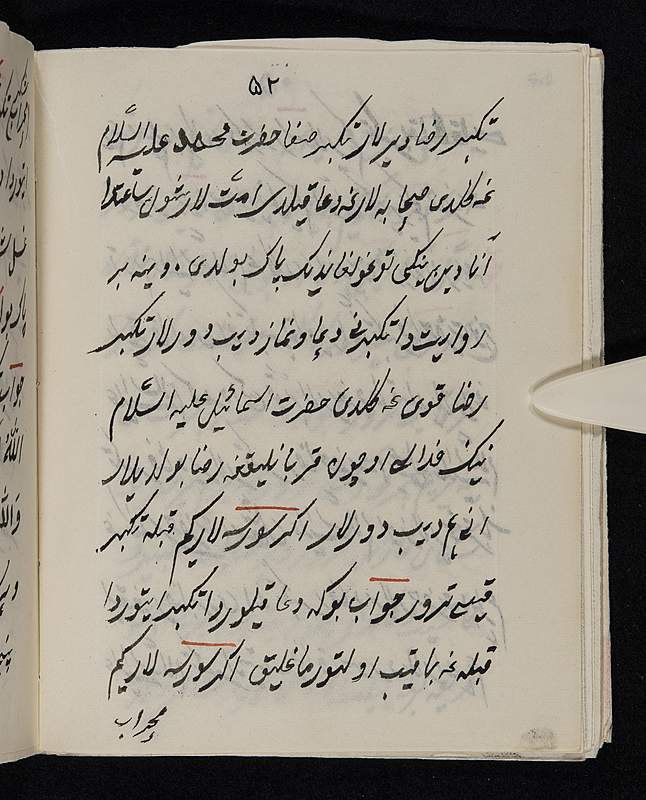 ۵۲
تکبیر رضا دیرلار تکبیر صفا حضرت محمد علیه السّلام
غه کلدی صحابه لارغه دعا قیلدی امّت لار شول ساعتدا
آنادین ینکی توغولغاندیک پاک بولدی. وینه بر
روایت دا تکبیرنی دیماو نماز دیب دورلار تکبیر
رضا قوی غه کلدی حضرت اسمائیل علیه السّلام
نینک فدالی اوچون قربانلیقغه رضا بولدیلار
انی هم دیب دورلار اکر سورسه لارکیم قبله تکبیر
قیسی تورور جواب بوکه دعا قیلوردا تکبیر ایتوردا
قبله غه باقیب اولتورماغلیق اکر سورسه لارکیم
محراب